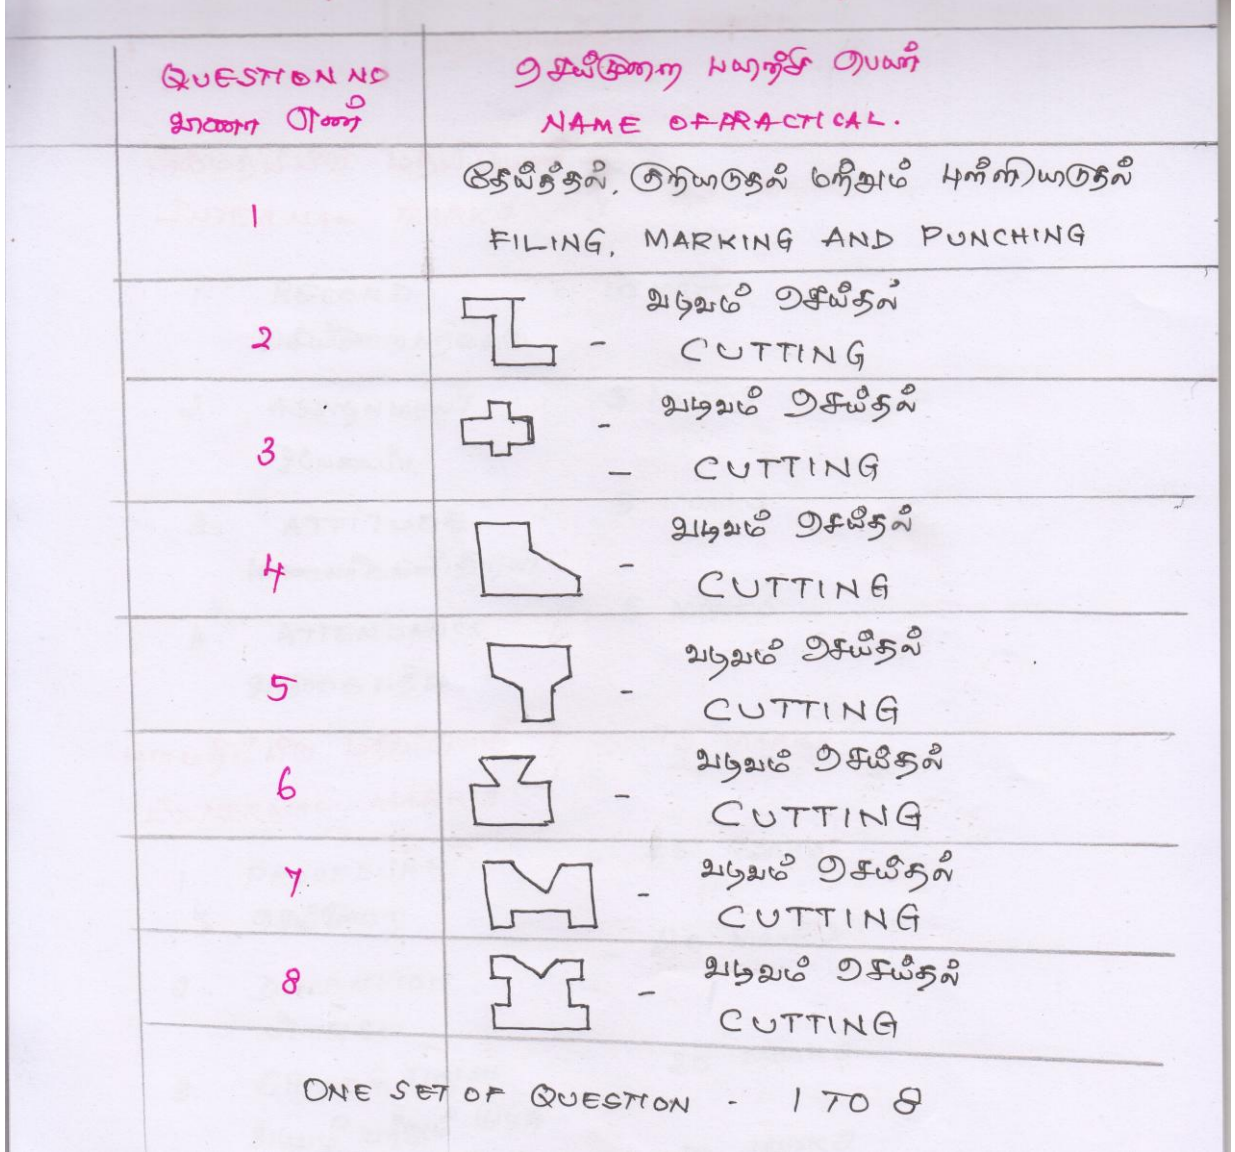 QUESTION NO
வினா எண்
செய்முறை பயிற்சி பெயர்
NAME OF PRACTICAL.
1
தேய்த்தல், குறியிடுதல் மற்றும் புள்ளியிடுதல்
FILING, MARKING AND PUNCHING
2
- வடிவம் செய்தல்
CUTTING
3
- வடிவம் செய்தல்
- CUTTING
4
- வடிவம் செய்தல்
CUTTING
5
- வடிவம் செய்தல்
CUTTING
6
- வடிவம் செய்தல்
CUTTING
7
- வடிவம் செய்தல்
CUTTING
8
- வடிவம் செய்தல்
CUTTING
ONE SET OF QUESTION - 1 TO 8